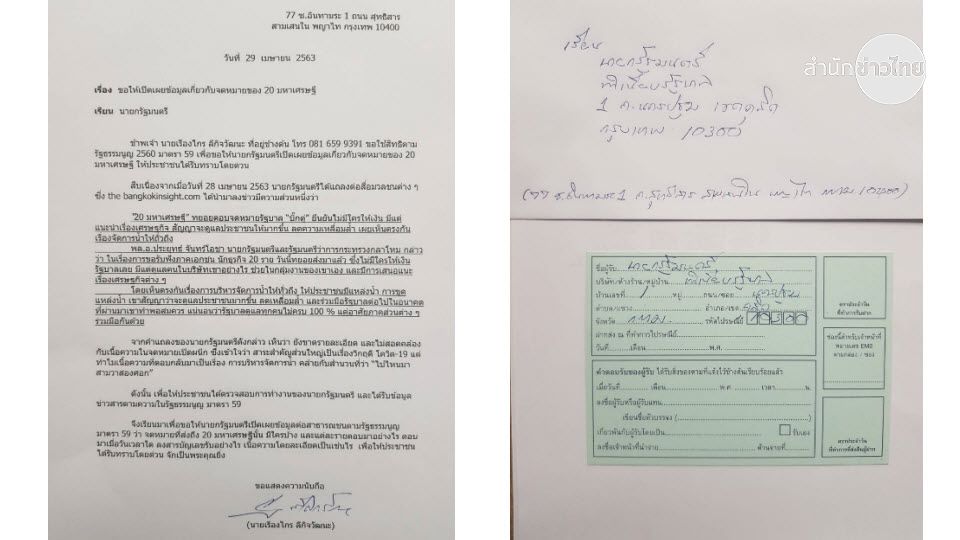 77 ซ.อินทามระ 1 ถนน สุทธิสาร
สามเสนใน พญาไท กรุงเทพ 10400
วันที่ 29 เมษายน 2563
เรื่อง ขอให้เปิดเผยข้อมูลเกี่ยวกับจดหมายของ 20 มหาเศรษฐี
เรียน นายกรัฐมนตรี
ข้าพเจ้า นายเรืองไกร ลีกิจวัฒนะ ที่อยู่ข้างต้น โทร 081 659 9391 ขอใช้สิทธิตาม
รัฐธรรมนูญ 2560 มาตรา 59 เพื่อขอให้นายกรัฐมนตรีเปิดเผยข้อมูลเกี่ยวกับจดหมายของ 20
มหาเศรษฐี ให้ประชาชนได้รับทราบโดยด่วน
สืบเนื่องจากเมื่อวันที่ 28 เมษายน 2563 นายกรัฐมนตรีได้แถลงต่อสื่อมวลชนต่าง ๆ
ซึ่ง the bangkokinsight.com ได้นำมาลงข่าวมีความส่วนหนึ่งว่า
"20 มหาเศรษฐี" ทยอยตอบจดหมายรัฐบาล "บิ๊กตู่" ยืนยันไม่มีใครให้เงิน มีแต่
แนะนำเรื่องเศรษฐกิจ สัญญาจะดูแลประชาชนให้มากขึ้น ลดความเหลื่อมล้ำ เผยเห็นตรงกัน
เรื่องจัดการน้ำให้ทั่วถึง
พล.อ.ประยุทธ์ จันทร์โอชา นายกรัฐมนตรีและรัฐมนตรีว่าการกระทรวงกลาโหม กล่าว
ว่า ในเรื่องการขอรับฟังภาคเอกชน นักธุรกิจ 20 ราย วันนี้ทยอยส่งมาแล้ว ซึ่งไม่มีใครให้เงิน
รัฐบาลเลย มีแต่ดูแลคนในบริษัทเขาอย่างไร ช่วยในกลุ่มงานของเขาเอง และมีการเสนอแนะ
เรื่องเศรษฐกิจต่าง ๆ
โดยเห็นตรงกันเรื่องการบริหารจัดการน้ำให้ทั่วถึง ให้ประชาชนมีแหล่งน้ำ การขุด
แหล่งน้ำ เขาสัญญาว่าจะดูแลประชาชนมากขึ้น ลดเหลื่อมล้ำ และร่วมมือรัฐบาลต่อไปในอนาคต
ที่ผ่านมาเขาทำพอสมควร แน่นอนว่ารัฐบาลดูแลทุกคนไม่ครบ 100 % แต่อาศัยภาคส่วนต่าง ๆ
ร่วมมือกันด้วย
จากคำแถลงของนายกรัฐมนตรีดังกล่าว เห็นว่า ยังขาดรายละเอียด และไม่สอดคล้อง
กับเนื้อความในจดหมายเปิดผนึก ซึ่งเข้าใจว่า สาระสำคัญส่วนใหญ่เป็นเรื่องวิกฤติ โควิด-19 แต่
ทำไมเนื้อความที่ตอบกลับมาเป็นเรื่อง การบริหารจัดการน้ำ คล้ายกับสำนวนที่ว่า "ไปไหนมา
สามวาสองศอก"
ดังนั้น เพื่อให้ประชาชนได้ตรวจสอบการทำงานของนายกรัฐมนตรี และได้รับข้อมูล
ข่าวสารตามความในรัฐธรรมนูญ มาตรา 59
จึงเรียนมาเพื่อขอให้นายกรัฐมนตรีเปิดเผยข้อมูลต่อสาธารณชนตามรัฐธรรมนูญ
มาตรา 59 ว่า จดหมายที่ส่งถึง 20 มหาเศรษฐีนั้น มีใครบ้าง และแต่ละรายตอบมาอย่างไร ตอบ
มาเมื่อวันเวลาใด ลงสารบัญเลขรับอย่างไร เนื้อความโดยละเอียดเป็นเช่นไร เพื่อให้ประชาชน
ได้รับทราบโดยด่วน จักเป็นพระคุณยิ่ง
ขอแสดงความนับถือ
(นายเรืองไกร ลีกิจวัฒนะ)
สำนักข่าวไทย
เรียน
นายกรัฐมนตรี
ทำเนียบรัฐบาล
1 ถ.นครปฐม เขตดุสิต
กรุงเทพ 10300
(77 ซ.อินทามระ 1 ถ.สุทธิสาร สามเสนใน พญาไท กทม 10400)
ชื่อผู้รับ นายกรัฐมนตรี
บริษัท/ห้าง/ร้าน/หมู่บ้าน ทำเนียบรัฐบาล
บ้านเลขที่ 1 หมู่ ถนน/ซอย นครปฐม
ตำบล/แขวง อำเภอ/เขต ดุสิต
จังหวัด กทม รหัสไปรษณีย์ 10300
ฝากส่ง ณ ที่ทำการไปรษณีย์
วันที่ เดือน พ.ศ.
ตราประจำวัน
ที่ทำการรับฝาก
ช่องนี้สำหรับเจ้าหน้าที่
หมายเลข EMS
คำตอบรับของผู้รับ ได้รับสิ่งของตามที่แจ้งไว้ข้างต้นเรียบร้อยแล้ว
เมื่อวันที่ เดือน พ.ศ. เวลา น.
ลงชื่อผู้รับหรือผู้รับแทน
เขียนชื่อตัวบรรจง ( )
เกี่ยวพันกับผู้รับโดยเป็น รับเอง
ลงชื่อเจ้าหน้าที่นำจ่าย ด้านจ่ายที่
ตราประจำวัน